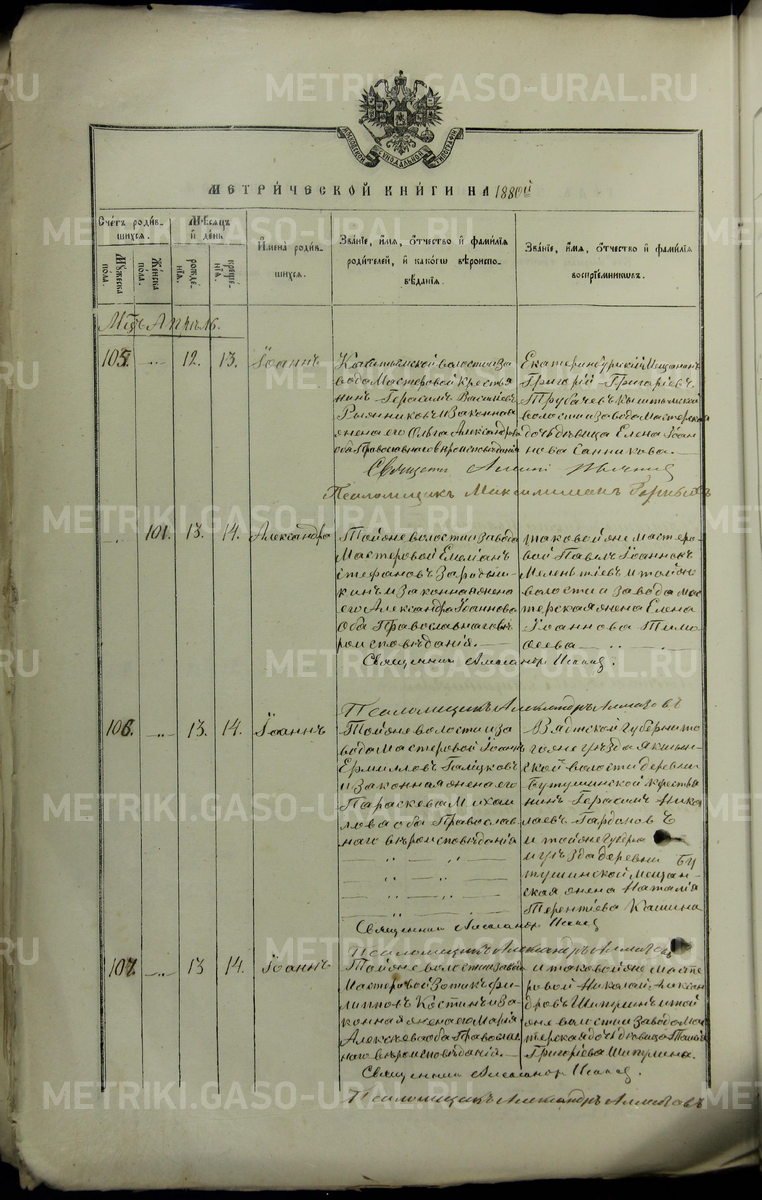 МЕТРИ́ЧЕСКОЙ КНИ́ГИ НА 1880й
Сче́тъ роди́в-
шихся.
Му́жеска пола.
Же́нска по́ла.
Мѣ́сяцъ
и́ де́нь
рожде́-
нїя.
креще́-
нїя.
И҆мена̀ роди́в-
шихся.
Зва́нїе, и҆́мя, ѻ҆́тчество и҆ фами́лїя
роди́телей, и҆ како́гѡ вѣроиспо-
вѣ́данїя.
Зва́нїе, и҆́мя, ѻ҆́тчество и҆ фами́лїя
воспрїе́мниковъ.
Мць Апрѣль.
105. 12. 13. Іоаннъ
Кыштымской волости и за
вода Мастеровой Крестья
нинъ Герасимъ Васильевъ
и законная
жена его Ольга Александрова
оба Православнаго вѣроисповѣданія
Екатеринбургскій Мещанинъ
Григорій Григоріевъ
Трубачевъ Кыштымской
волости и завода мастерская
дочь дѣвица Елена Іоан
нова Санникова.
Священн
Псаломщикъ Максимилианъ
101. 13. 14. Александра
Той же волости и завода
Мастеровой Емеліанъ
Стефановъ
и законная жена
его Александра Іоаннова
Оба Православнаго вѣ
роисповѣданія.
таковой же мастеро-
вой Павелъ Іоанновъ
Мелентіевъ и той же
волости и завода мас
терская жена Елена
Іоаннова Тимо
феева
Священникъ Александръ
Псаломщикъ Александръ Алмазовъ
106. 13. 14. Іоаннъ
Той же волости и за
вода мастеровой Іоаннъ
Ермиловъ Галицковъ
и законная жена его
Параскева Михаи
лова оба Православ
наго вѣроисповѣданія
Вятской Губерніи то
го же уѣзда
ской волости деревни
Бутушинской крестья
нинъ Герасимъ Нико
лаевъ Гардоновъ
и той же Губерніи
и уѣзда деревни Бу
тушинской Мещан
ская жена Наталія
Терентіева Кашина
Священникъ Александръ
Псаломщикъ Александръ Алмазовъ
107. 13 14. Іоаннъ
Той же волости и завода
Мастеровой Зотикъ Фи
липповъ Костинъ и за
конная жена его Марія
Алексѣева оба Православ
наго вѣроисповѣданія.
и таковой же масте
ровой Николай Алексан
дровъ Шипулинъ и той
же волости и завода Мас
терская дочь дѣвица
Григоріева Шипулина.
Священникъ Александръ
Псаломщикъ Александръ Алмазовъ
METRIKI.GASO-URAL.RU